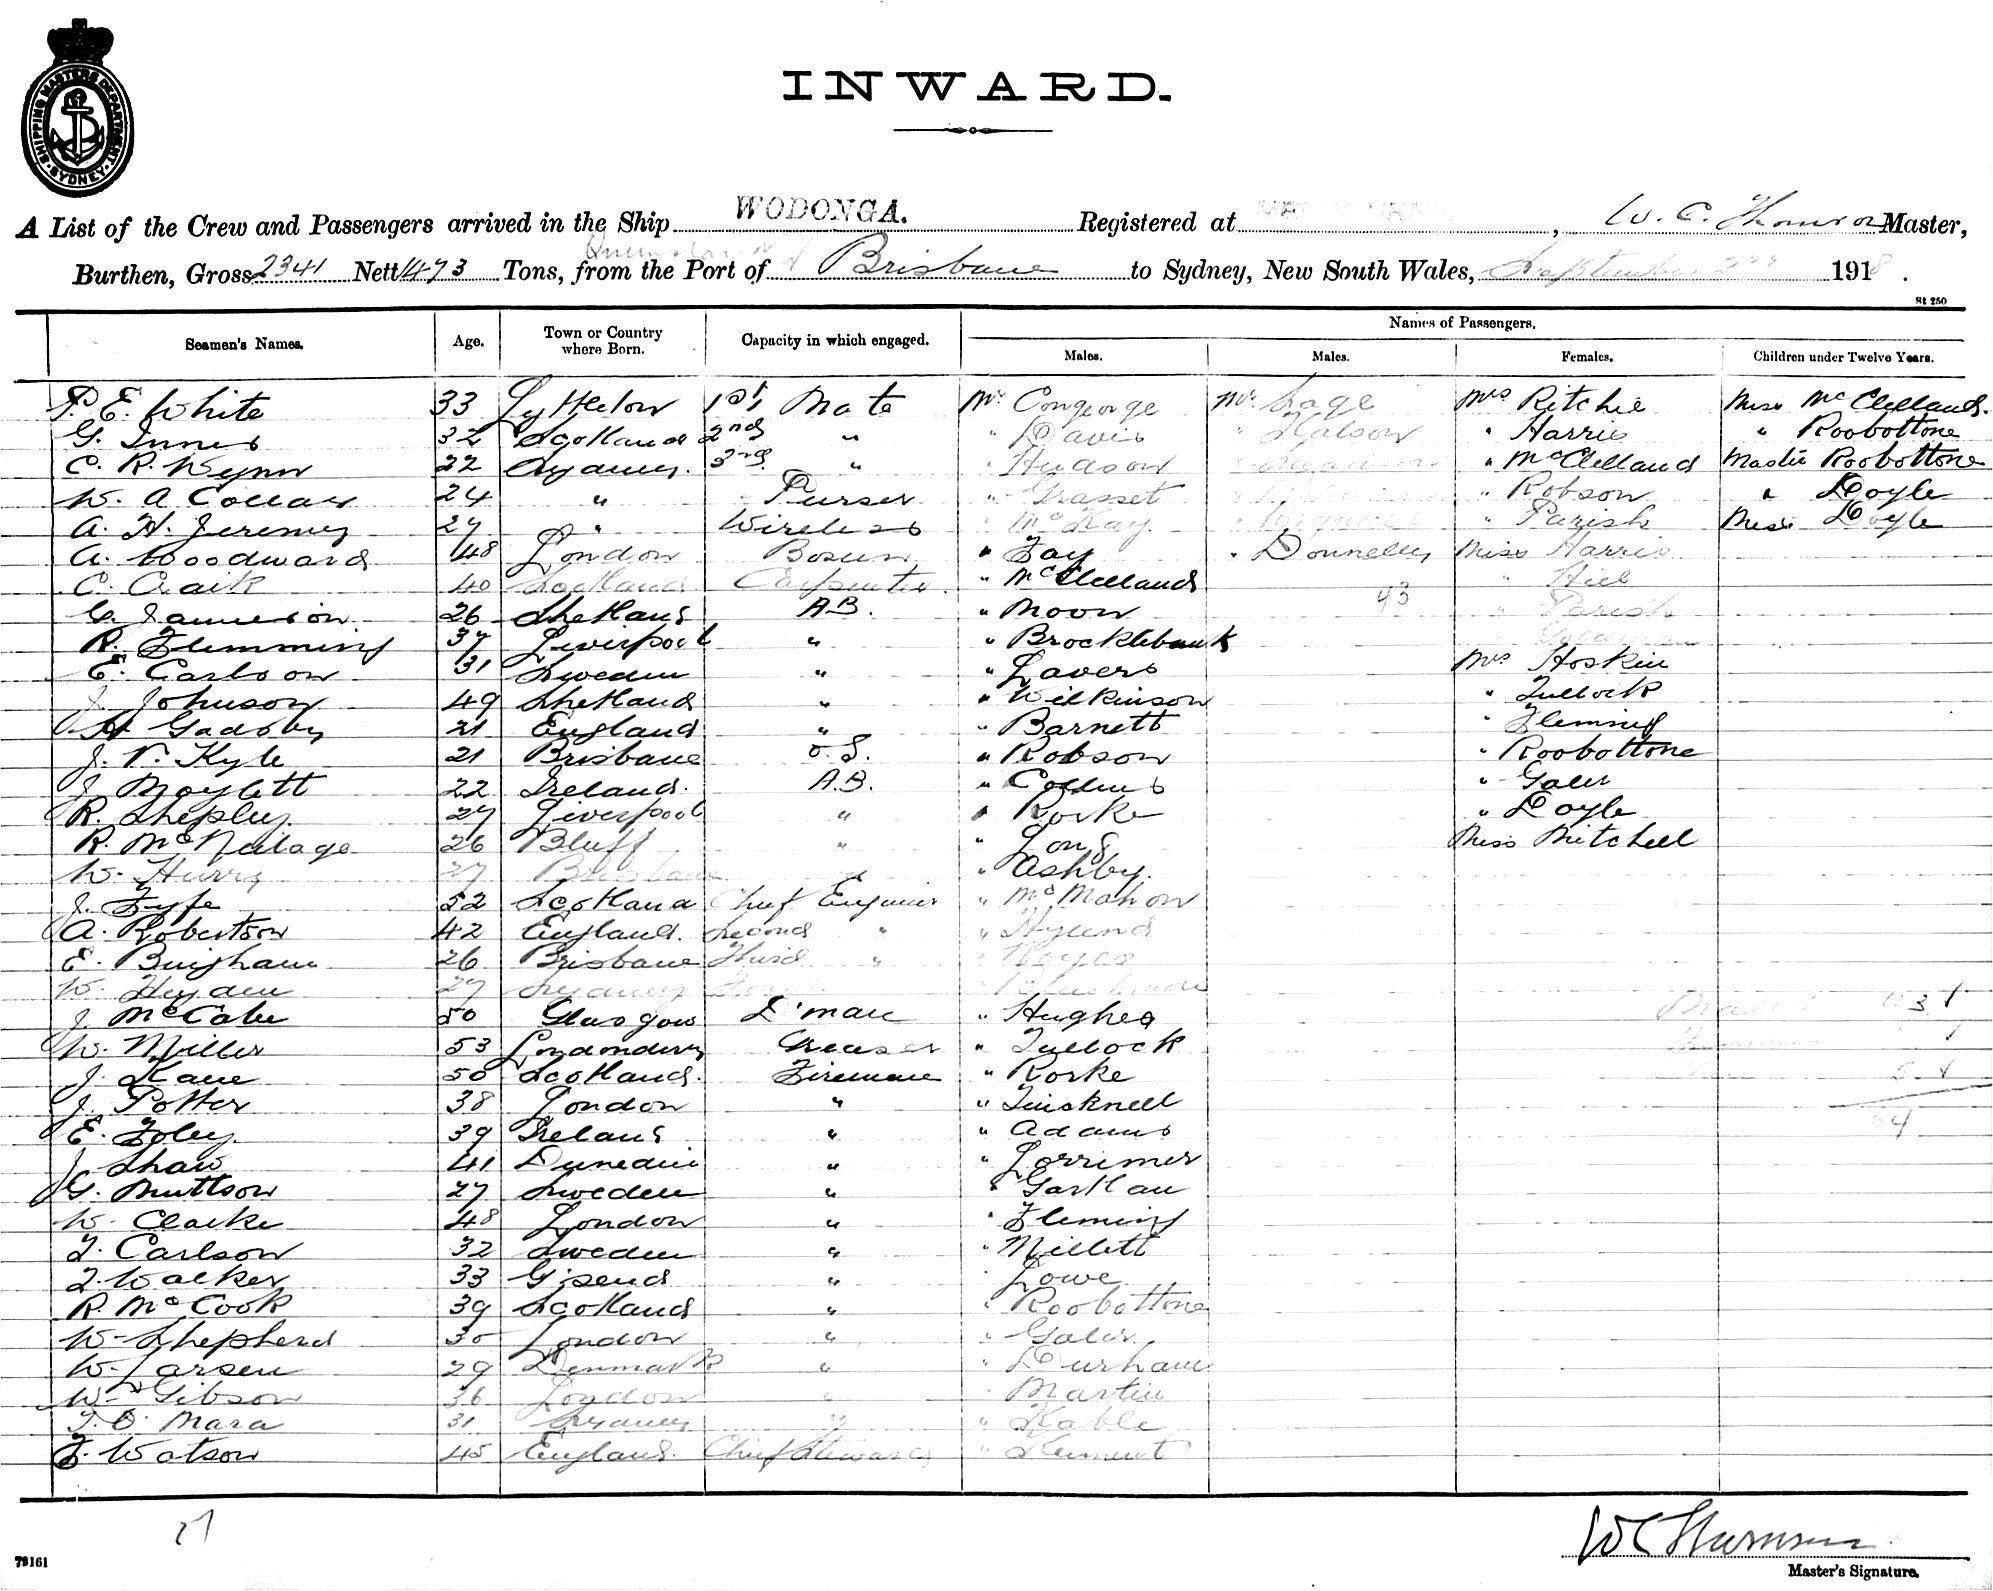 SHIPPING MASTERS DEPARTMENT · SYDNEY ·
INWARD.
A List of the Crew and Passengers arrived in the Ship WODONGA. Registered at , W. C. Thomson Master,
Burthen, Gross 2341 Nett 1473 Tons, from the Port of Brisbane to Sydney, New South Wales, September 2nd 1918.
St 250
Seamen's Names. Age. Town or Country where Born. Capacity in which engaged. Names of Passengers.
Males. Males. Females. Children under Twelve Years.
P. E. White 33 Lyttleton 1st Mate Mr Congeorge Mr Sage Mrs Ritchie Miss McClelland.
G. Innes 32 Scotland 2nd " " Davis " Watson " Harris " Roobottone
C. R. Wynn 22 Sydney. 3rd " " Hudson " McClelland Master Roobottone
W. A. Collar 24 " Purser " Grasset " Robson " Doyle
A. H. Jeremy 27 " Wireless " McKay " Parish Miss Doyle
A. Woodward 48 London Bosun " Fay " Donnelly Miss Harris
C. Craik 40 Scotland Carpenter " McClelland " Hill
G. Jamieson 26 Shetland A.B. " Moon 43 " Parish
R. Flemming 37 Liverpool " " Brocklebank
E. Carlson 31 Sweden " " Lavers Mrs Hoskin
J. Johnson 49 Shetland " " Wilkinson " Tullock
H Gadsby 21 England " " Barnett " Fleming
J. V. Kyle 21 Brisbane O.S. " Robson " Roobottone
J. Boylett 22 Ireland. A.B. " Collins " Galer
R. Shepley. 27 Liverpool " " Rorke " Doyle
R. McNeilage 26 Bluff " " Long Miss Mitchell
W. Hurry 27 Brisbane " " Ashby.
J. Fyfe 52 Scotland Chief Engineer " McMahon
A. Robertson 42 England. Second " " Hylend
E. Bingham 26 Brisbane Third " " Noyes
W. Heyden 27 Sydney
J. McCabe 50 Glasgow D'man " Hughes
W. Miller 53 Londonderry Greaser " Tullock
J. Kane 50 Scotland. Fireman " Rorke
J. Potter 38 London " " Tuicknell
E. Foley. 39 Ireland " " Adams
J. Shaw 41 Dunedin " " Lorrimer
G. Muttson 27 Sweden " " Gartlan
W. Clarke 48 London " " Fleming
T. Carlson 32 Sweden " " Millett
T. Walker 33 G'send " " Lowe
R. McCook 39 Scotland " " Roobottone
W. Shepherd 30 London " " Galer.
W. Larsen 29 Denmark " " Durham
W. Gibson 36 London " " Martin
T. O. Mara 31 Sydney " " Kable
F. Watson 45 England. Chief Steward " Kement
W C Thomson
79161
Master's Signature.